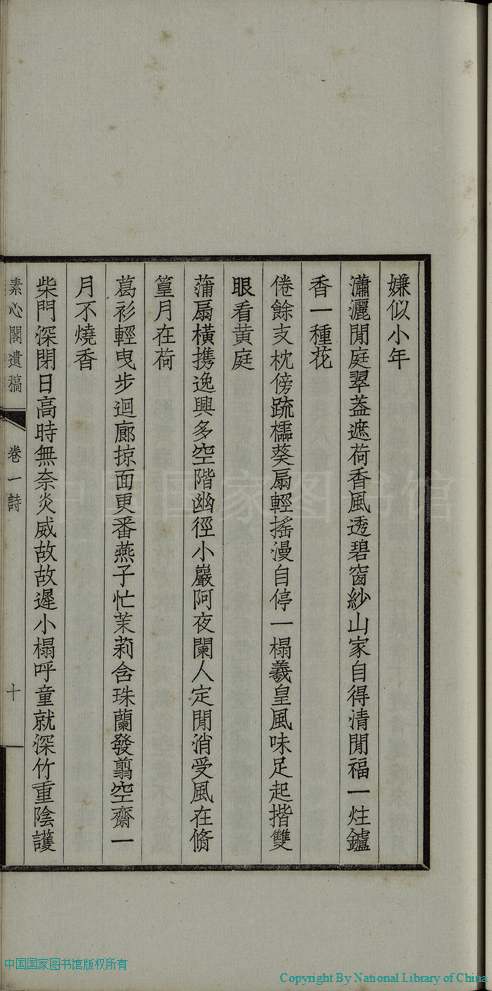 嫌似小年
瀟灑閒庭翠葢遮荷香風透碧窗紗山家自得清閒福一炷鑪
香一種花
倦餘支枕傍疏櫺葵扇輕搖漫自停一榻羲皇風味足起揩雙
眼看黄庭
蒲扇橫携逸興多空階幽徑小巖阿夜闌人定閒消受風在脩
篁月在荷
葛衫輕曳步迴廊掠面更番燕子忙茉莉含珠蘭發翦空齋一
月不燒香
柴門深閉日高時無奈炎威故故遲小榻呼童就深竹重陰護
素心閣遺稿
卷一詩
十
中国国家图书馆
中国国家图书馆版权所有
Copyright By National Library of China